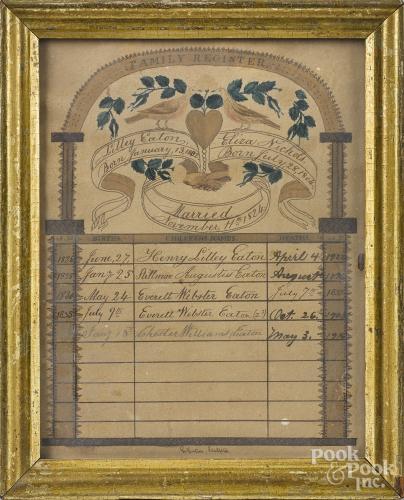 FAMILY REGISTER.
Lilley Eaton,
Born January, 13,
Eliza Nichols
Born July 28,
Married
November, 11th 1824.
BIRTHS. CHILDREN'S NAMES. DEATHS.
June, 27. Henry Lilley Eaton April 4.
Jany 25 Augustus Eaton August
May 24. Everett Webster Eaton July 7th
July 9th Everett Webster Eaton (2d) Oct. 26.
Jany 18 Chester Williams Eaton May 3.
Pook
& Pook
Inc.